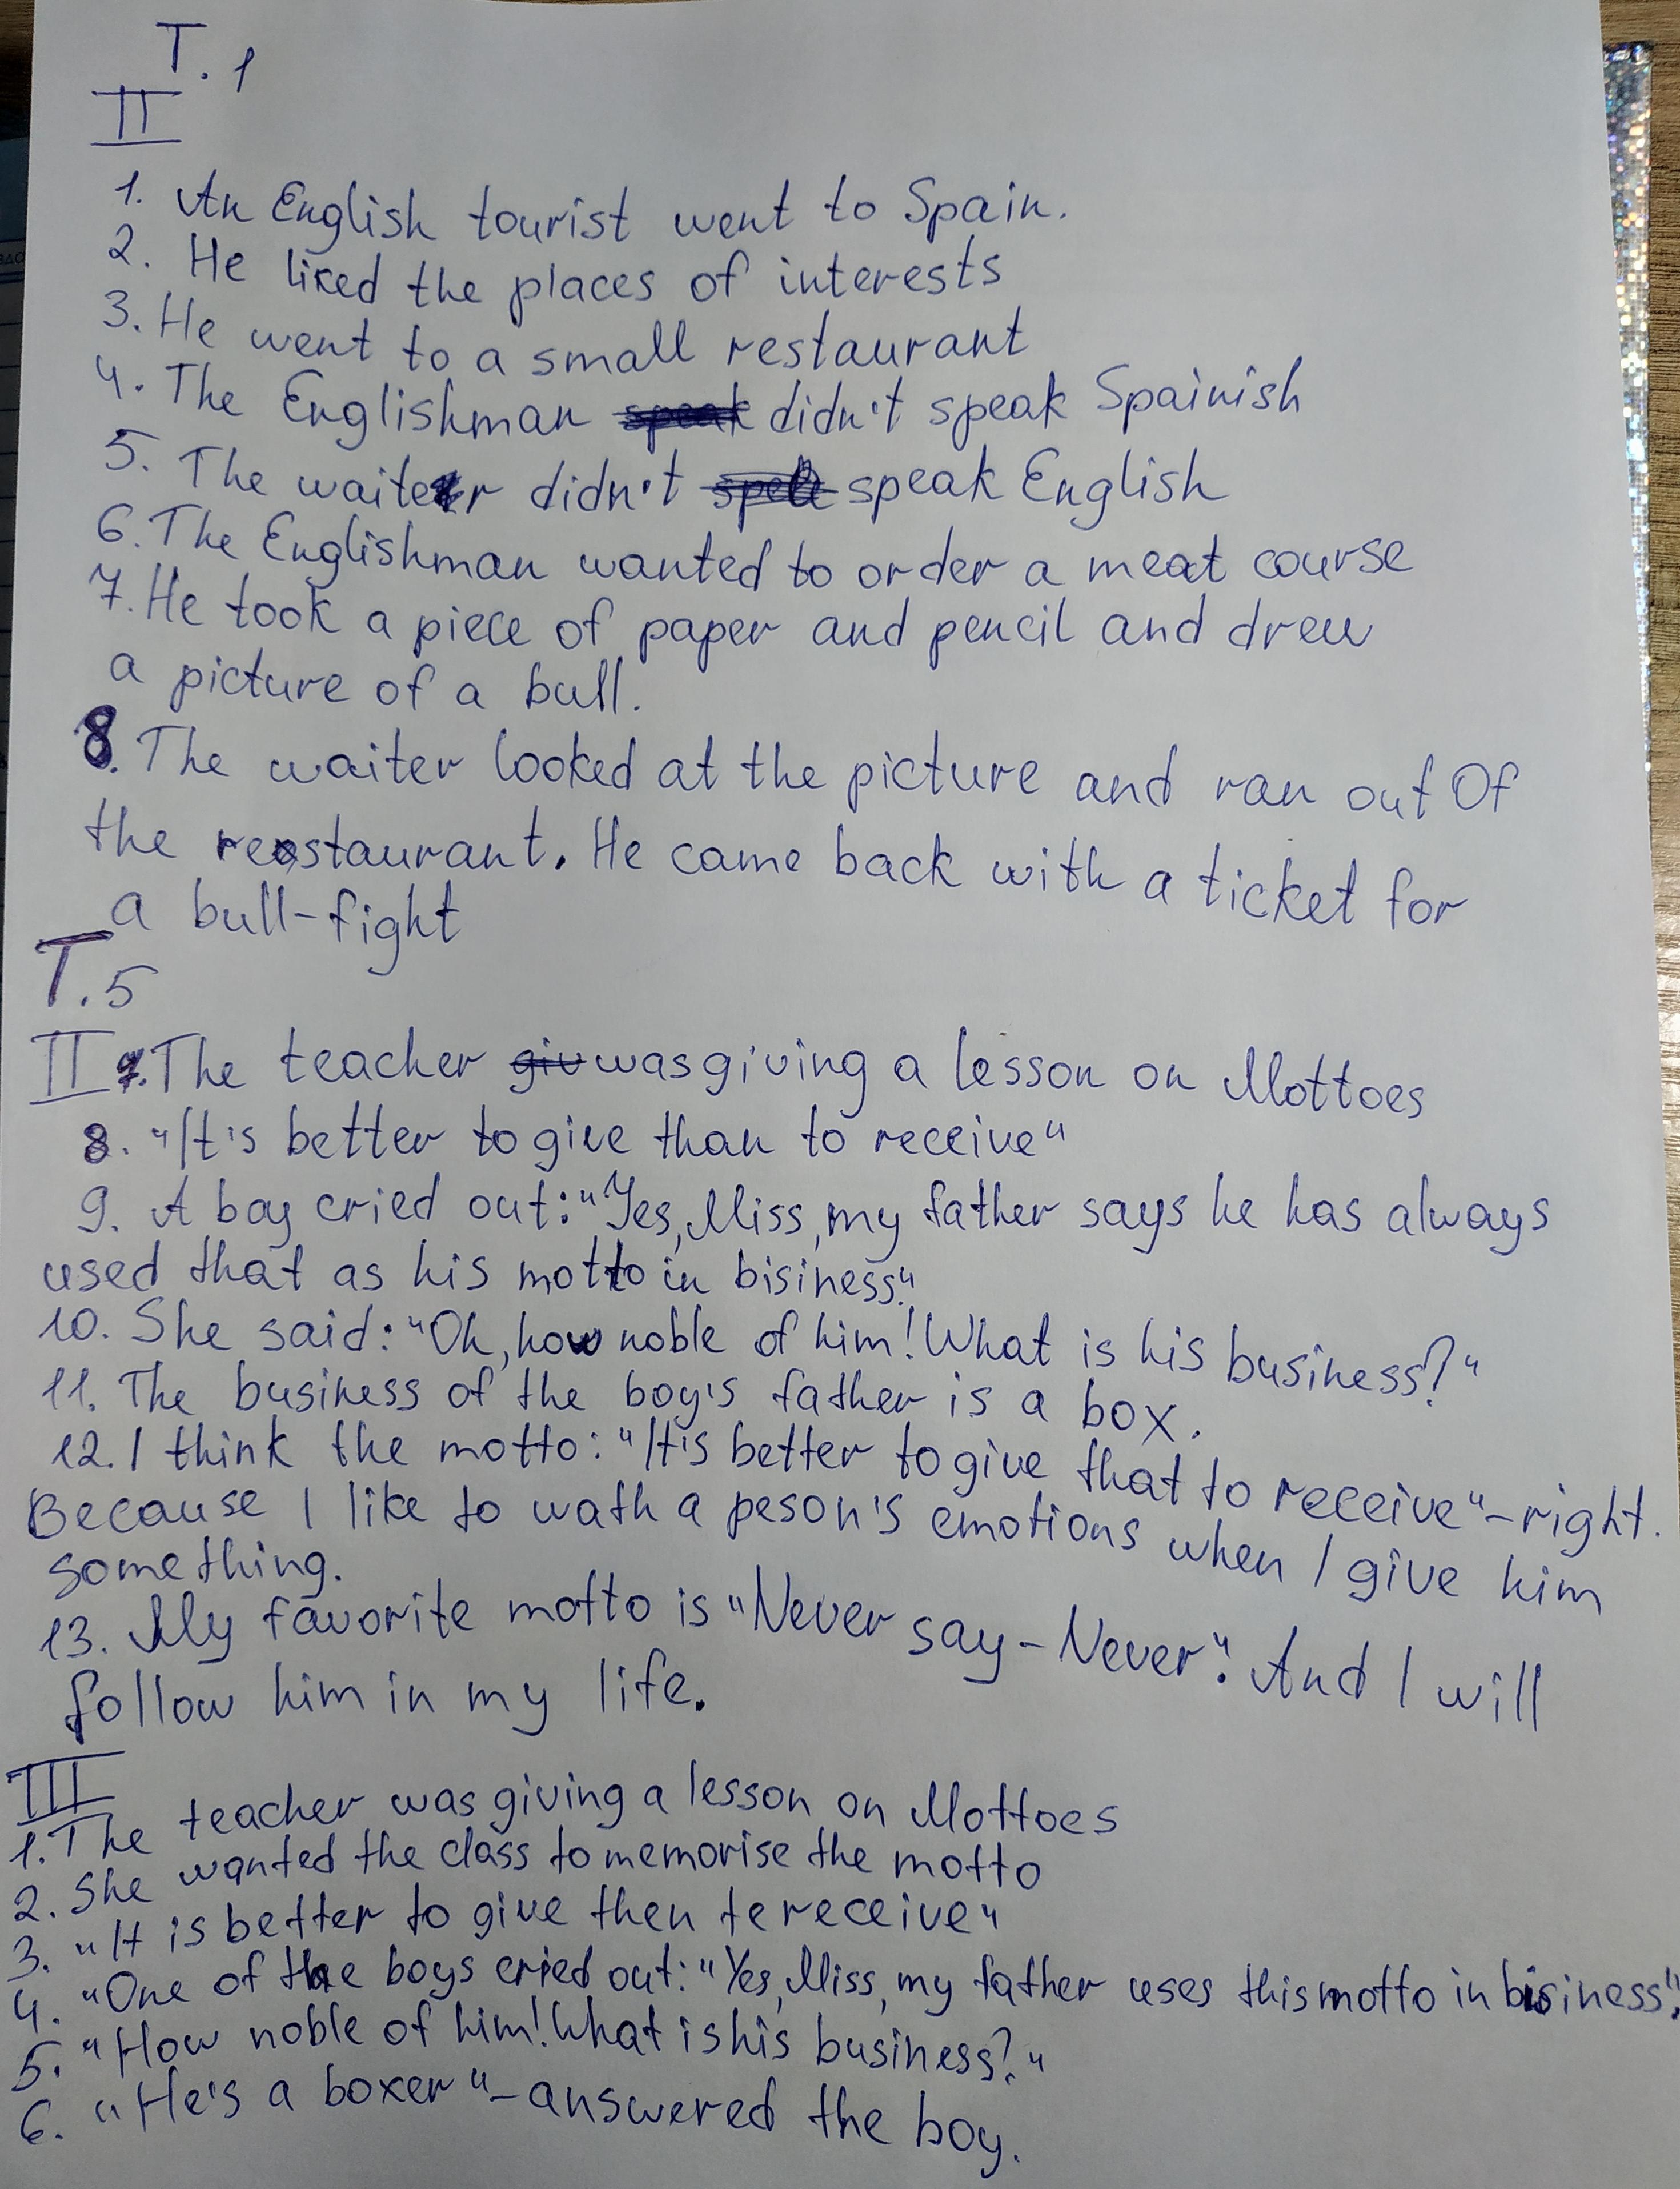 T. 1
II
1. An English tourist went to Spain.
2. He liked the places of interests
3. He went to a small restaurant
4. The Englishman didn't speak Spainish
5. The waiter didn't speak English
6. The Englishman wanted to order a meat course
7. He took a piece of paper and pencil and drew
a picture of a bull.
8. The waiter looked at the picture and ran out Of
the restaurant. He came back with a ticket for
a bull-fight
T. 5
II 7. The teacher was giving a lesson on Mottoes
8. "It's better to give than to receive"
9. A boy cried out: "Yes, Miss, my father says he has always
used that as his motto in bisiness."
10. She said: "Oh, how noble of him! What is his business?"
11. The business of the boy's father is a box.
12. I think the motto: "It's better to give that to receive" - right.
Because I like to wath a peson's emotions when I give him
something.
13. My favorite motto is "Never say - Never". And I will
follow him in my life.
III
1. The teacher was giving a lesson on Mottoes
2. She wanted the class to memorise the motto
3. "It is better to give then te receive"
4. "One of the boys cried out: "Yes, Miss, my father uses this motto in bisiness".
5. "How noble of him! What is his business?"
6. "He's a boxer" - answered the boy.